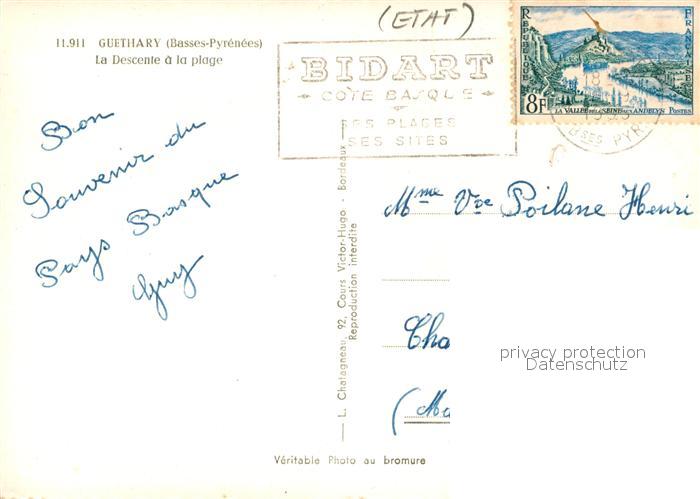 (ETAT)
11.911 GUETHARY (Basses-Pyrénées)
La Descente à la plage
BIDART
COTE BASQUE
SES PLAGES
SES SITES
REPUBLIQUE
FRANÇAISE
8F
LA VALLEE DE LA SEINE AUX ANDELYS POSTES
18
Bses PYR
Bon
Souvenir du
Pays Basque
Guy
Mme Vve Poilane Henri
Cha
(Ma
privacy protection
Datenschutz
L. Chatagneau, 92, Cours Victor-Hugo. - Bordeaux
Reproduction interdite
Véritable Photo au bromure